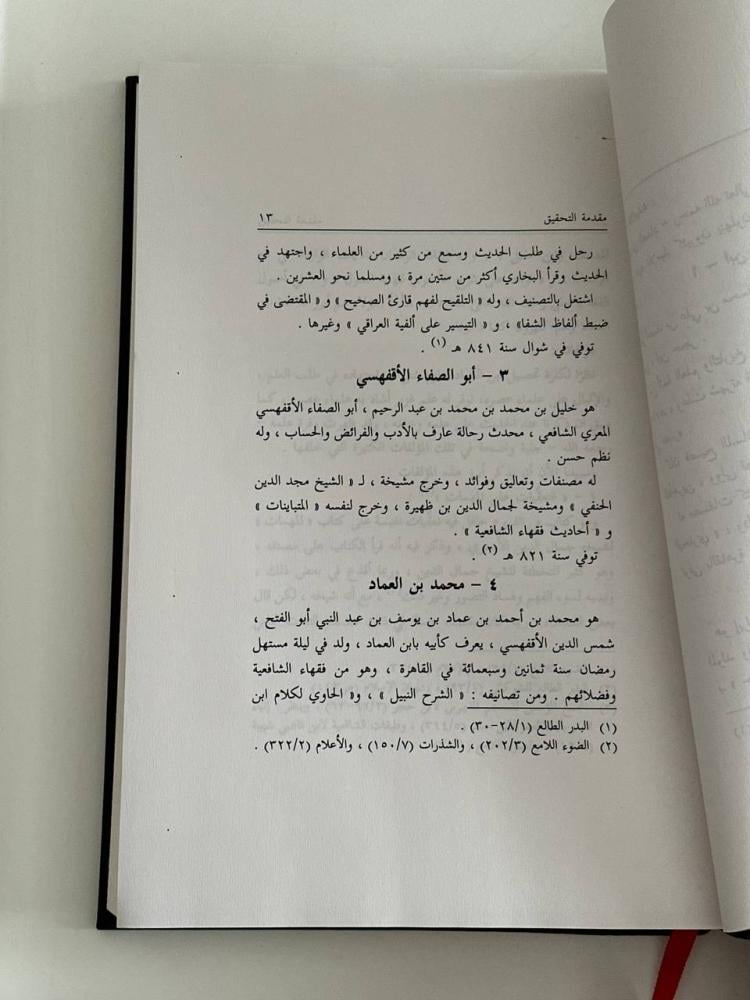 مقدمة التحقيق ١٣
رحل في طلب الحديث وسمع من كثير من العلماء ، واجتهد في
الحديث وقرأ البخاري أكثر من ستين مرة ، ومسلما نحو العشرين .
اشتغل بالتصنيف ، وله « التلقيح لفهم قارئ الصحيح » و « المقتضى في
ضبط ألفاظ الشفا» ، و « التيسير على ألفية العراقي » وغيرها .
توفي في شوال سنة ٨٤١ هـ (١) .
٣ – أبو الصفاء الأقفهسي
هو خليل بن محمد بن محمد بن عبد الرحيم ، أبو الصفاء الأقفهسي
المعري الشافعي ، محدث رحالة عارف بالأدب والفرائض والحساب ، وله
نظم حسن .
له مصنفات وتعاليق وفوائد ، وخرج مشيخة ، لـ « الشيخ مجد الدين
الحنفي » ومشيخة لجمال الدين بن ظهيرة ، وخرج لنفسه « المتباينات »
و « أحاديث فقهاء الشافعية » .
توفي سنة ٨٢١ هـ (٢) .
٤ – محمد بن العماد
هو محمد بن أحمد بن عماد بن يوسف بن عبد النبي أبو الفتح ،
شمس الدين الأقفهسي ، يعرف كأبيه بابن العماد ، ولد في ليلة مستهل
رمضان سنة ثمانين وسبعمائة في القاهرة ، وهو من فقهاء الشافعية
وفضلائهم . ومن تصانيفه : « الشرح النبيل » ، و« الحاوي لكلام ابن
(١) البدر الطالع (٢٨/١-٣٠) .
(٢) الضوء اللامع (٢٠٢/٣) ، والشذرات (١٥٠/٧) ، والأعلام (٣٢٢/٢) .